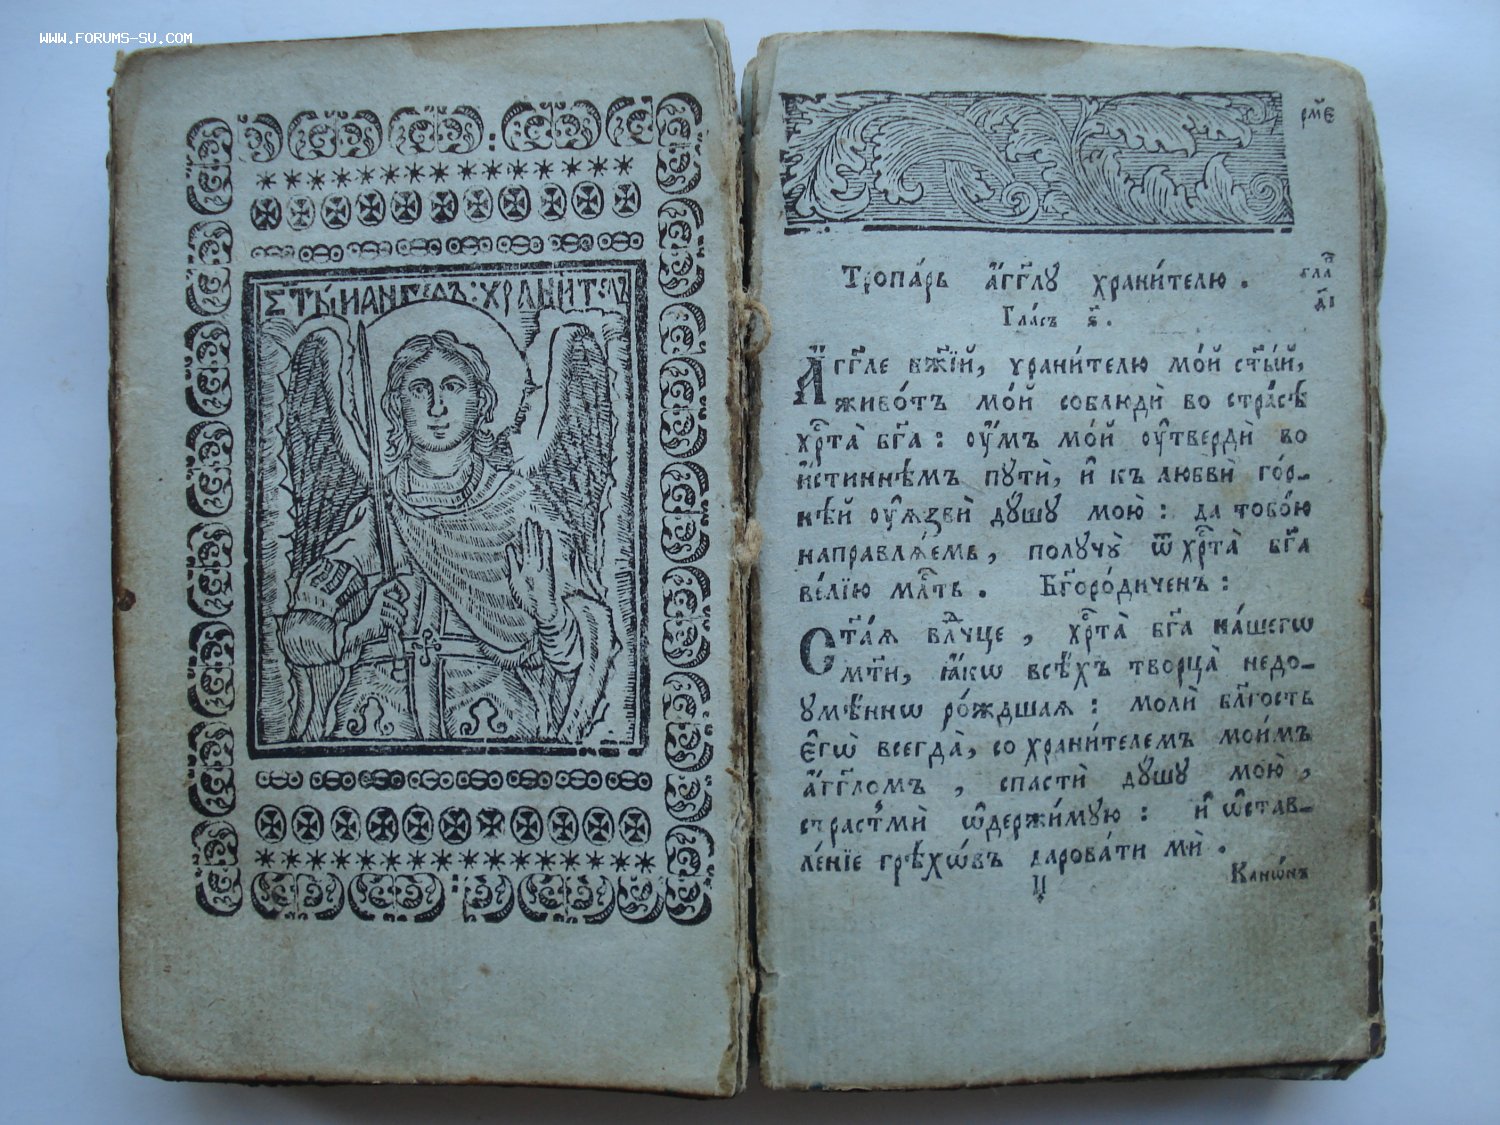 WWW.FORUMS-SU.COM
СТЫ҃И АНГ҃ЕЛЪ: ХРАНИТЕЛЬ
рм҃є
Тропа́рь а҆́гг҃лу храни́телю .
гла҃
д҃і
Гла́съ ѕ҃ .
А҆́гг҃ле бж҃їй, храни́телю мо́й ст҃ы́й,
живо́тъ мо́й соблюдѝ во стра́сѣ
хрⷭ҇та̀ бг҃а : оу҆́мъ мо́й оу҆твердѝ во
и҆́стиннѣмъ путѝ, и҆ къ любвѝ го́р-
нѣй оу҆ѧзвѝ ду́шу мою̀ : да тобо́ю
направлѧ́емь, получу̀ ѿ хрⷭ҇та̀ бг҃а
ве́лїю млⷭ҇ть . Бг҃оро́диченъ :
Ст҃а́ѧ влⷣчце , хрⷭ҇та̀ бг҃а на́шегѡ
мт҃и, ꙗ҆́кѡ всѣ́хъ творца̀ недо-
умѣ́ннѡ ро́ждшаѧ : молѝ бл҃гость
є҆гѡ̀ всегда̀, со храни́телемъ мои́мъ
а҆́гг҃ломъ , спастѝ ду́шу мою̀ ,
страстьмѝ ѡ҆держи́мую : и҆ ѡ҆став-
ле́нїе грѣхѡ́въ дарова́ти мѝ .
Ц
Кано́нъ